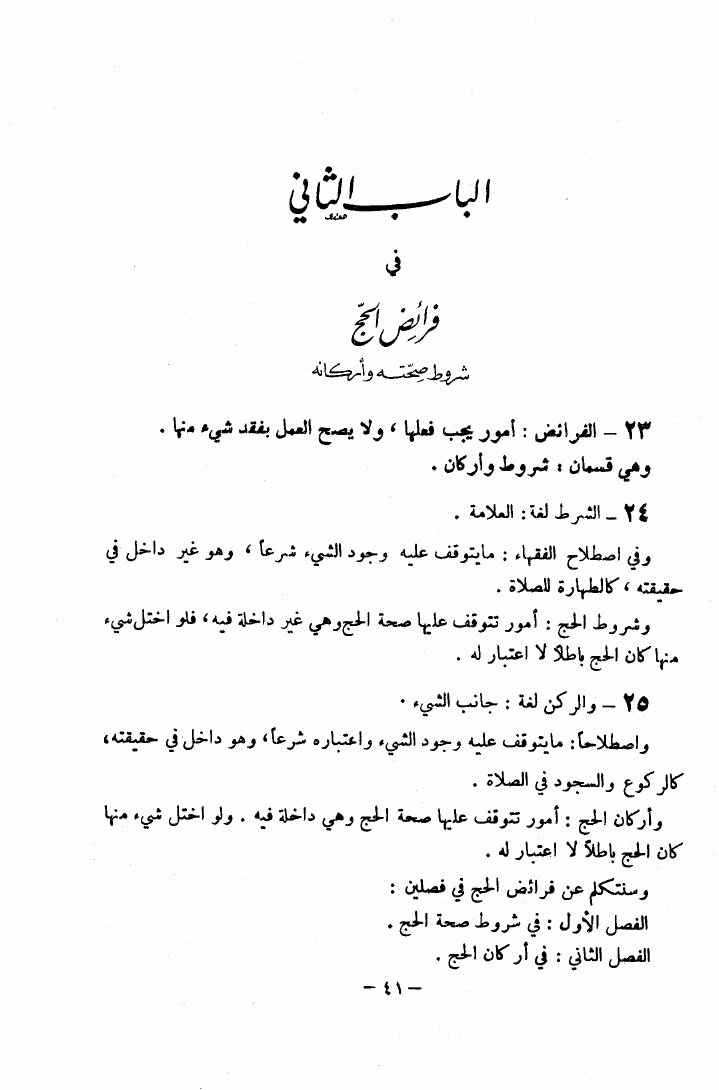 الباب الثاني
في
فرائض الحجّ
شروط صحّته وأركانه
٢٣ – الفرائض : أمور يجب فعلها ، ولا يصح العمل بفقد شيء منها .
وهي قسمان : شروط وأركان .
٢٤ – الشرط لغة : العلامة .
وفي اصطلاح الفقهاء : مايتوقف عليه وجود الشيء شرعاً ، وهو غير داخل في
حقيقته ، كالطهارة للصلاة .
وشروط الحج : أمور تتوقف عليها صحة الحج وهي غير داخلة فيه ، فلو اختل شيء
منها كان الحج باطلاً لا اعتبار له .
٢٥ – والركن لغة : جانب الشيء .
واصطلاحاً : مايتوقف عليه وجود الشيء واعتباره شرعاً ، وهو داخل في حقيقته ،
كالركوع والسجود في الصلاة .
وأركان الحج : أمور تتوقف عليها صحة الحج وهي داخلة فيه . ولو اختل شيء منها
كان الحج باطلاً لا اعتبار له .
وسنتكلم عن فرائض الحج في فصلين :
الفصل الأول : في شروط صحة الحج .
الفصل الثاني : في أركان الحج .
– ٤١ –